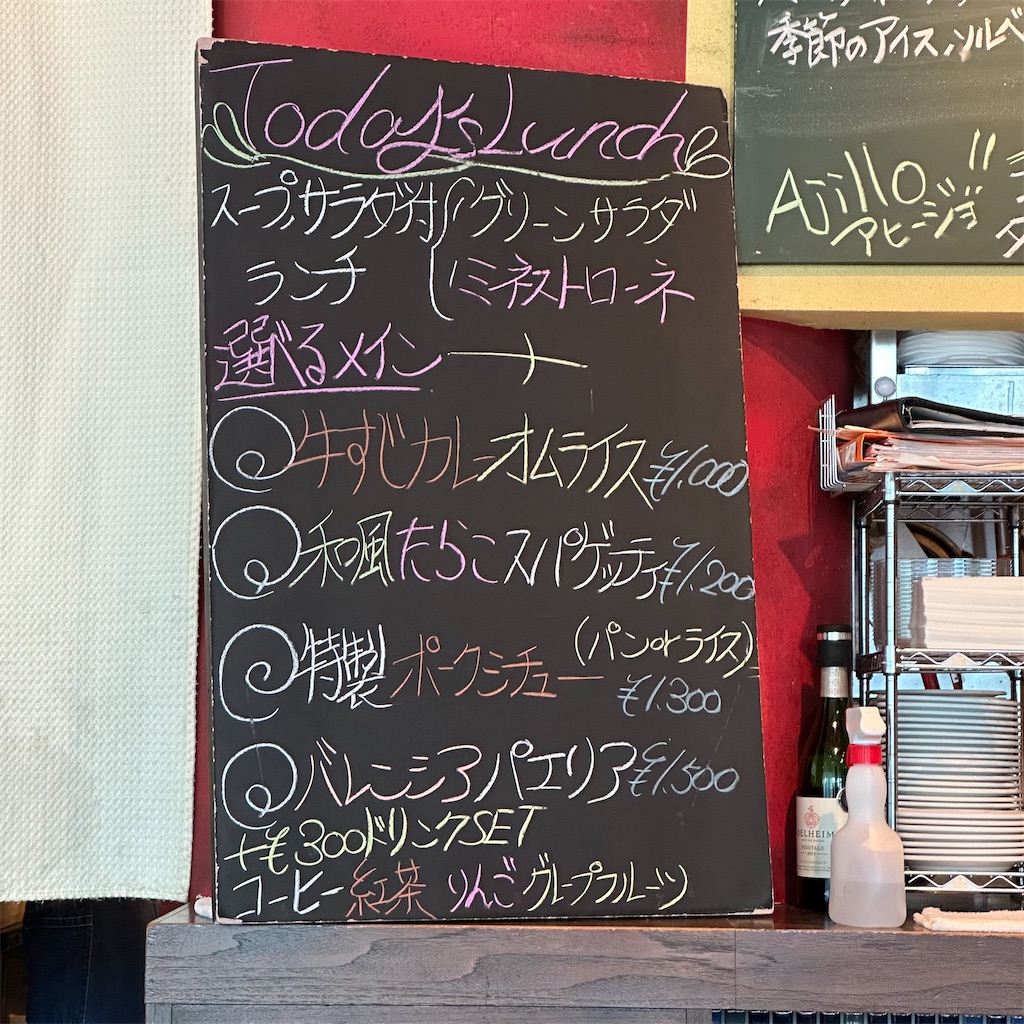 Today's Lunch
スープ、サラダ付 グリーンサラダ
ランチ ミネストローネ
選べるメイン +
牛すじカレーオムライス ¥1,000
和風たらこスパゲッティ ¥1,200
特製ポークシチュー (パンorライス)
¥1,300
バレンシアパエリア ¥1,500
+¥300ドリンクSET
コーヒー 紅茶 りんご グレープフルーツ
季節のアイス、ソルベ
Ajillo!!
アヒージョ
PINOTAGE